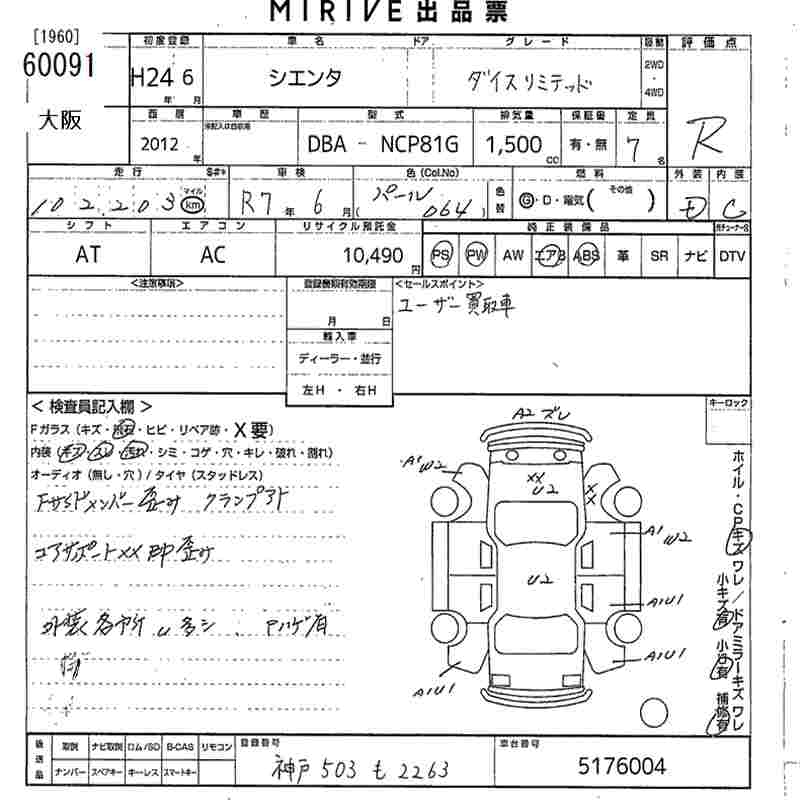 MIRIVE 出品票
[1960]
60091
大阪
初度登録 車名 ドア グレード 駆動 評価点
H24 6 シエンタ ダイスリミテッド 2WD
年 月 ・4WD
R
西暦 車歴 型式 排気量 保証書 定員
2012 年 DBA - NCP81G 1,500 cc 有・無 7 名
走行 車検 色(Col.No) 燃料 外装 内装
102203 マイル km R7 年 6 月 パール ( 064 ) 色替 G・D・電気( その他 ) D C
シフト エアコン リサイクル預託金 純正装備品
AT AC 10,490 円 PS PW AW エアB ABS 革 SR ナビ DTV
<注意事項> 登録書類有効期限 <セールスポイント>
月 日 ユーザー買取車
輸入車
ディーラー・並行
左H ・ 右H
< 検査員記入欄 > キーロック
Fガラス (キズ・飛石・ヒビ・リペア跡・X要)
内装 (キズ・スレ・汚れ・シミ・コゲ・穴・キレ・破れ・割れ)
オーディオ (無し・穴) / タイヤ (スタッドレス)
Fサイドメンバー歪み クランプアト
コアサポートXX 歪み
外装各所 U多シ Pハゲ有
A2 ズレ
XX
U2
XX
A1 U2
A1
U2
A1U1
A1U1
A1U1
ホイル・CPキズ ワレ / ドアミラーキズ ワレ
小キズ有 小凹有 補修有
後送品 取説 ナビ取説 ロム/SD B-CAS リモコン 登録番号 車台番号
ナンバー スペアキー キーレス スマートキー 神戸 503 も 2263 5176004